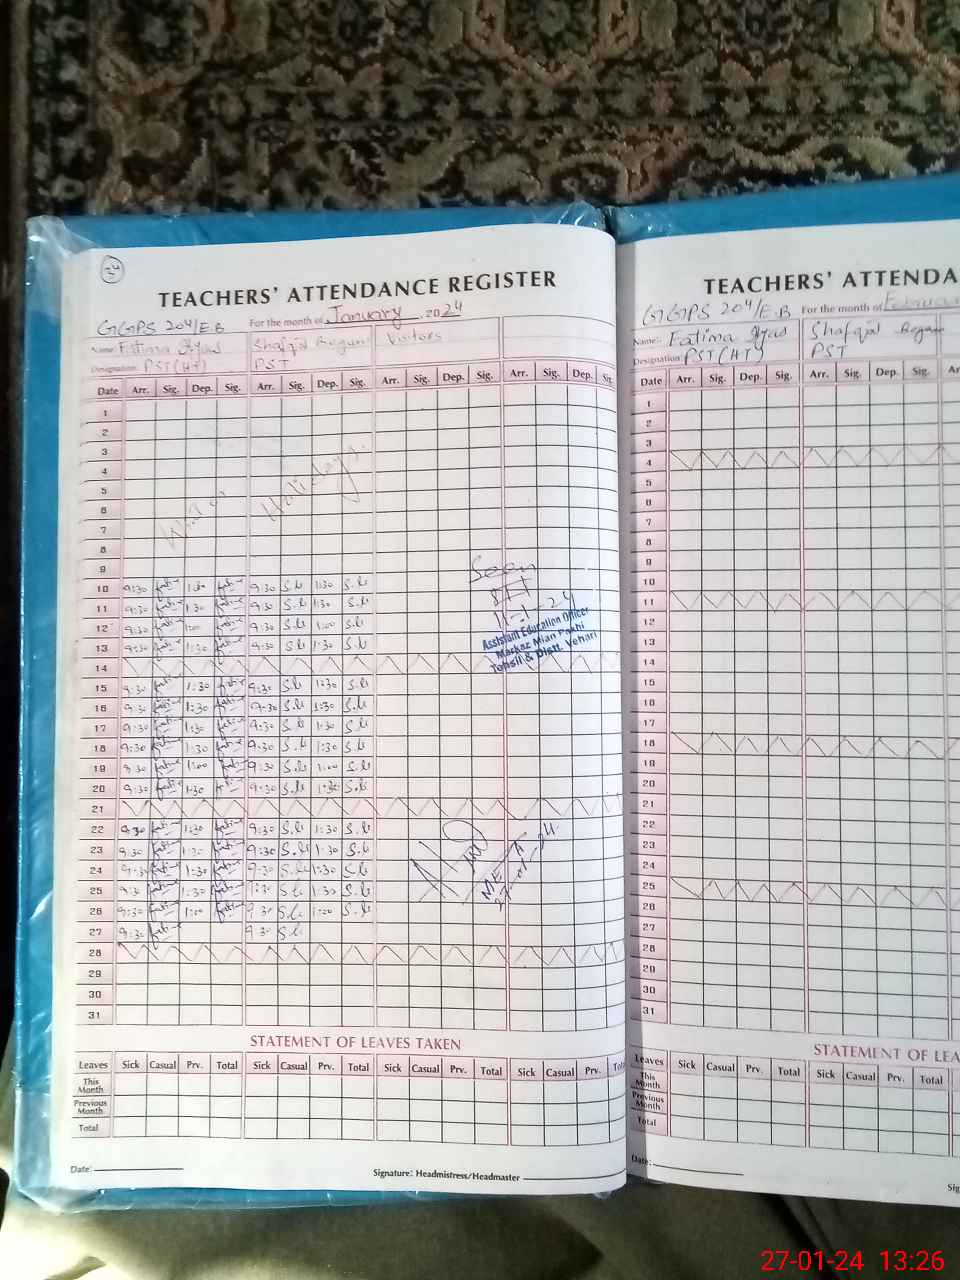 TEACHERS' ATTENDANCE REGISTER
GGPS 204/E.B For the month of January 2024
Name: Fatima Ilyas Shafqat Begum Visitors
Designation: PST (HT) PST
Date Arr. Sig. Dep. Sig. Arr. Sig. Dep. Sig. Arr. Sig. Dep. Sig. Arr. Sig. Dep. Sig.
1
2
3
4
5
6
7
8
9
Winter Holidays.
10 9:30 1:30 9:30 S.b 1:30 S.b
11 9:30 1:30 9:30 S.b 1:30 S.b
12 9:30 1:00 9:30 S.b 1:00 S.b
13 9:30 1:30 9:30 S.b 1:30 S.b
Seen
11-1-24
Assistant Education Officer
Markaz Mian Pakhi
Tehsil & Distt. Vehari
14
15 9:30 1:30 9:30 S.b 1:30 S.b
16 9:30 1:30 9:30 S.b 1:30 S.b
17 9:30 1:30 9:30 S.b 1:30 S.b
18 9:30 1:30 9:30 S.b 1:30 S.b
19 9:30 1:00 9:30 S.b 1:00 S.b
20 9:30 1:30 9:30 S.b 1:30 S.b
21
22 9:30 1:30 9:30 S.b 1:30 S.b
23 9:30 1:30 9:30 S.b 1:30 S.b
24 9:30 1:30 9:30 S.b 1:30 S.b
25 9:30 1:30 9:30 S.b 1:30 S.b
26 9:30 1:00 9:30 S.b 1:00 S.b
27 9:30 9:30 S.b
MEA
27-01-24
28
29
30
31
STATEMENT OF LEAVES TAKEN
Leaves Sick Casual Prv. Total Sick Casual Prv. Total Sick Casual Prv. Total Sick Casual Prv. Total
This Month
Previous Month
Total
Date:
Signature: Headmistress/Headmaster
TEACHERS' ATTENDA
GGPS 204/E.B For the month of Februar
Name: Fatima Ilyas Shafqat Begum
Designation: PST (HT) PST
Date Arr. Sig. Dep. Sig. Arr. Sig. Dep. Sig. Ar
1
2
3
4
5
6
7
8
9
10
11
12
13
14
15
16
17
18
19
20
21
22
23
24
25
26
27
28
29
30
31
STATEMENT OF LEA
Leaves Sick Casual Prv. Total Sick Casual Prv. Total
This Month
Previous Month
Total
Date:
Sig
27-01-24 13:26